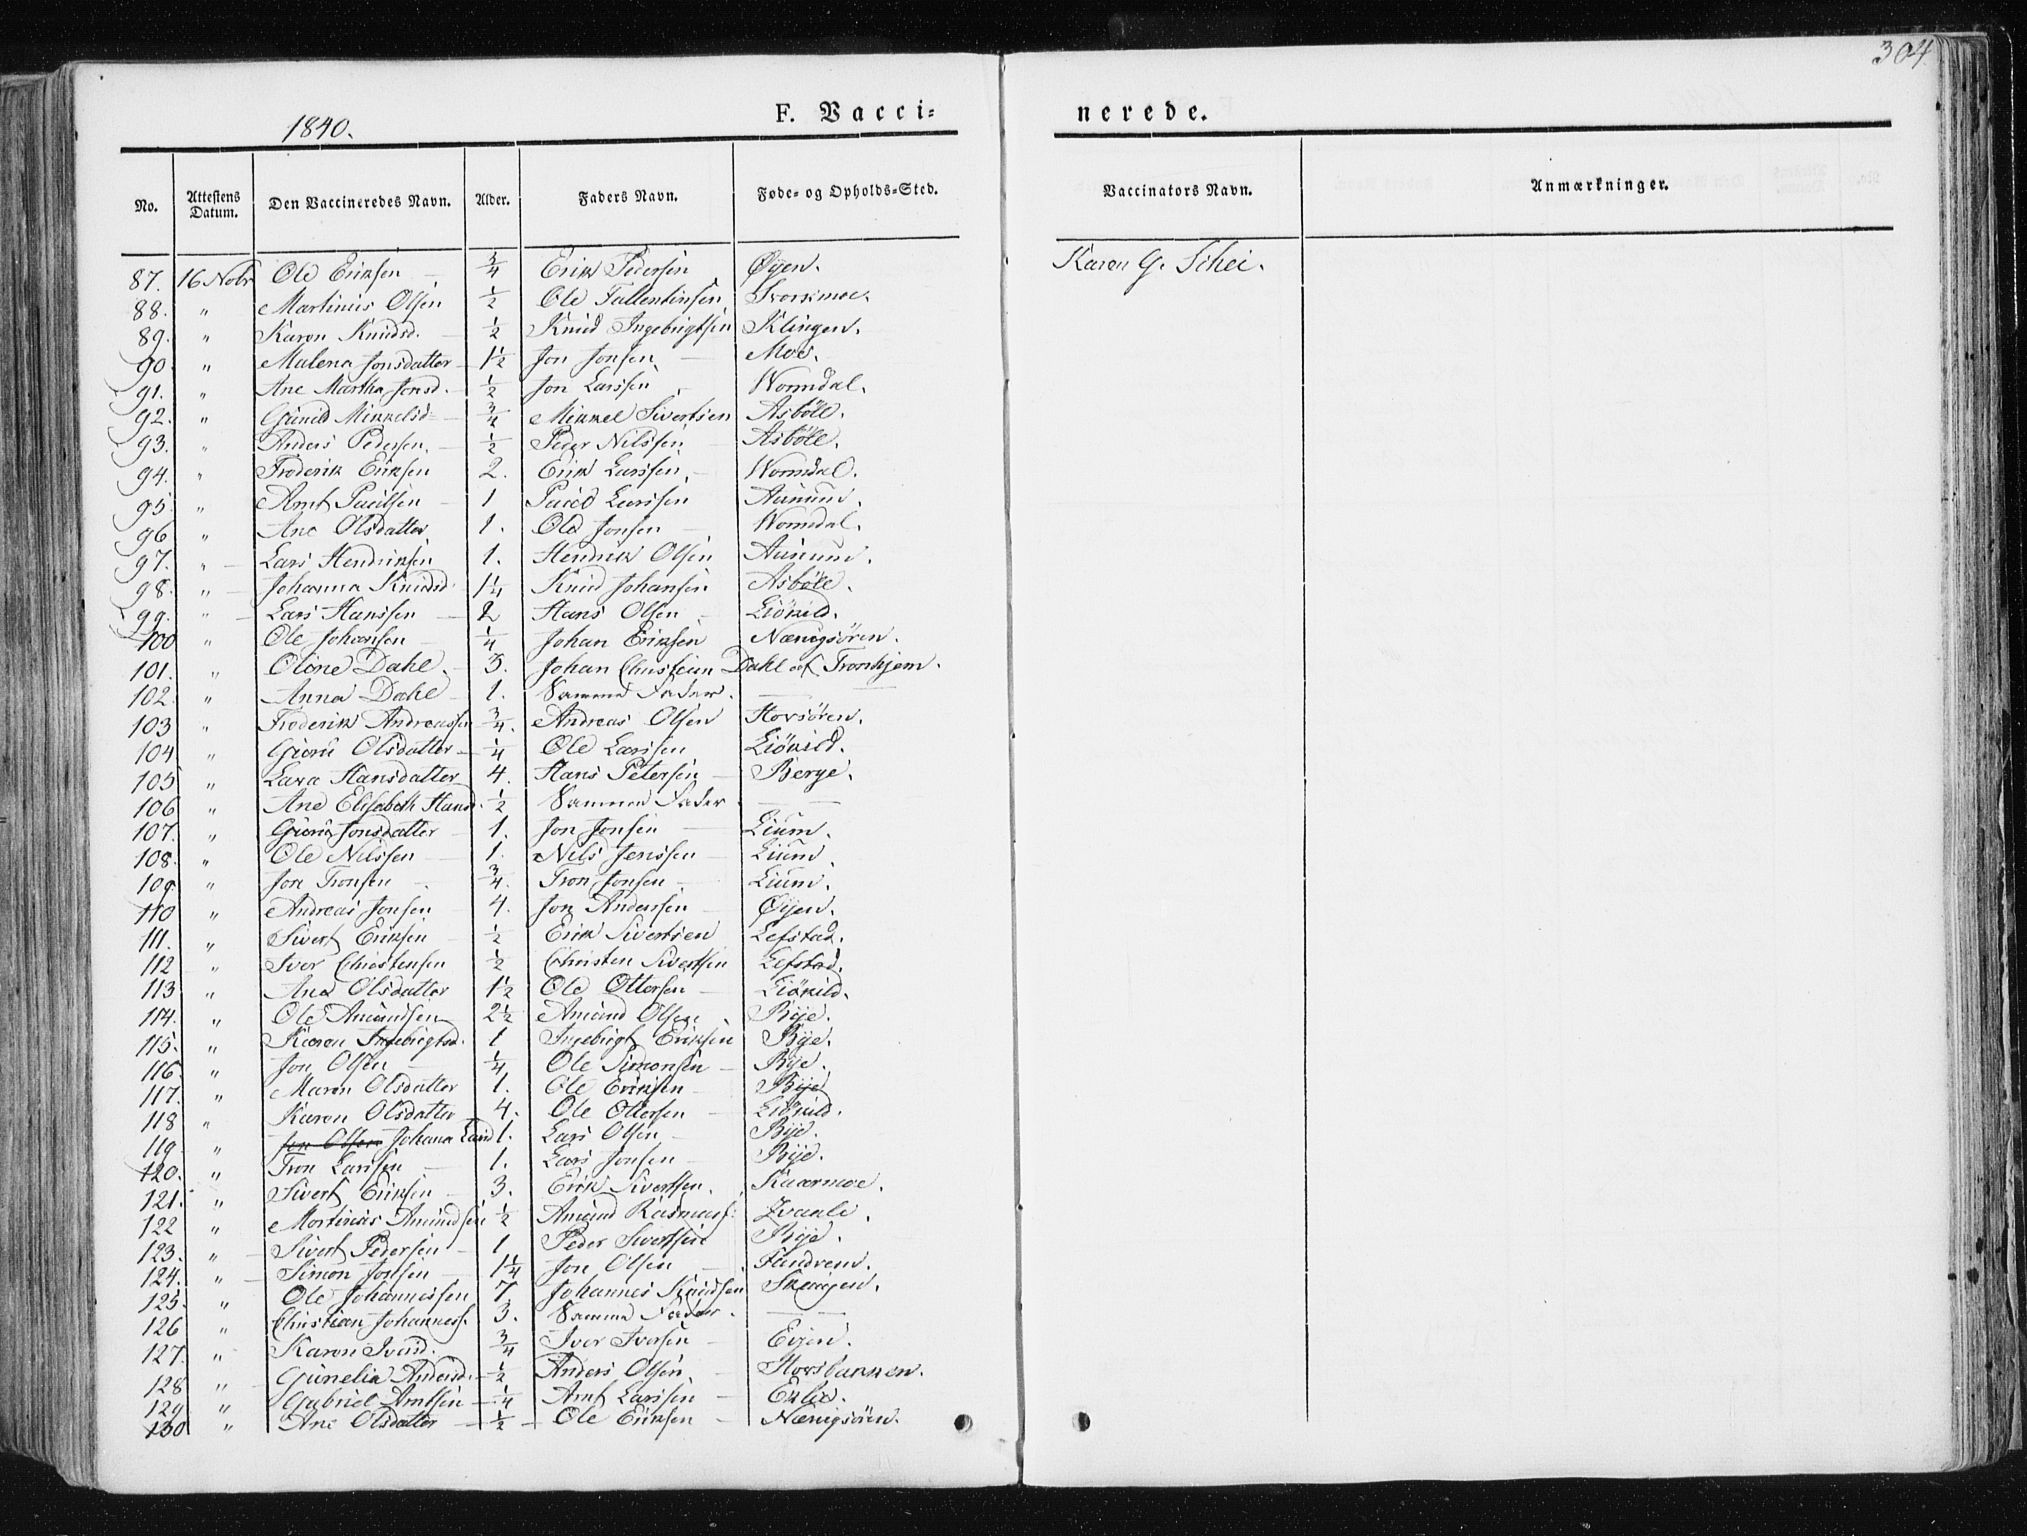 304.
1840.
F. Vacci= nerede.
No. Attestens Datum. Den Vaccineredes Navn. Alder. Faders Navn. Føde- og Opholds-Sted. Vaccinators Navn. Anmærkninger.
87. 16 Nobr Ole Eriksen 3/4 Erik Pedersen Øyen. Karen G. Schei.
88. " Martinus Olsen 1/2 Ole Tallentinsen Storsmoe.
89. " Karen Knudsd. 1/2 Knud Ingebrigtsen Klingen.
90. " Malena Jonsdatter 1 1/2 Jon Jonsen Moe.
91. " Ane Martha Jonsd. 1/2 Jon Larssen Wormdal.
92. " Gunild Mikkelsd 3/4 Mikkel Sivertsen Asböle.
93. " Anders Pedersen. 1/2 Peder Nilssen Asböle.
94. " Frederik Eriksen 2. Erik Larssen. Wormdal.
95. " Arnt Paulsen 1 Paul Larssen Aunum.
96 " Ane Olsdatter 1. Ole Jonsen Wormdal.
97. " Lars Hendriksen 1. Hendrik Olsen Aunum.
98. " Johanna Knudsd. 1 1/4 Knud Johansen Asböle.
99. " Lars Hanssen 2 Hans Olsen Liökild.
100 " Ole Johansen 1/4 Johan Eriksen Nænigsören.
101. " Oline Dahl. 3. Johan Christian Dahl af Tronhjem.
102. " Anna Dahl 1. Samme Fader.
103 " Frederik Andreassen 3/4. Andreas Olsen Hovsören.
104 " Gjerú Olsdatter 1/4 Ole Larssen Liökild.
105 " Lava Hansdatter 4. Hans Petersen Berge.
106 " Ane Elisabeth Hansd. 1/2 Samme Fader
107. " Gjerú Jonsdatter 1. Jon Jonsen Lium.
108. " Ole Nilssen 1. Nils Jenssen Lium.
109 " Jon Tronsen 3/4. Tron Jonsen Lium.
110 " Andreas Jonsen 4. Jon Anderssen Øyen.
111. " Sivert Eriksen 1/2 Erik Sivertsen Lefstad.
112 " Iver Christensen 1/2 Christen Sivertsen Lefstad.
113 " Ane Olsdatter 1 1/2 Ole Ottersen Liökild.
114. " Ole Amundsen 2 1/2 Amund Olsen Rye.
115. " Karen Ingebrigtsd. 1 Ingebrigt Eriksen Rye.
116. " Jon Olsen 1/4 Ole Simonsen Rye.
117. " Maren Olsdatter 1. Ole Eriksen Rye
118 " Karen Olsdatter 4. Ole Ottersen Liökild.
119. " Jon Olsen Johana Larsd 1. Lars Olsen Rye.
120. " Tron Larssen 1. Lars Jonsen Rye.
121. " Sivert Eriksen 3. Erik Sivertsen. Kaarmoe.
122 " Martinus Amundsen 1/2 Amund Rasmuss:
123. " Sivert Pedersen 1 Peder Sivertsen Rye.
124. " Simon Jonsen 1 1/4 Jon Olsen Fandrem.
125. " Ole Johannessen 7 Johannes Knudsen
126 " Christian Johanness. 3. Samme Fader.
127. " Karen Iversd. 3/4 Iver Iversen Evjen.
128 " Gunelia Andersd. 1/2 Anders Olsen. Hovsbakken.
129 " Gabriel Arntsen 1/4 Arnt Larssen Eklie.
130 " Ane Olsdatter 1/2 Ole Eriksen Nænigsören.